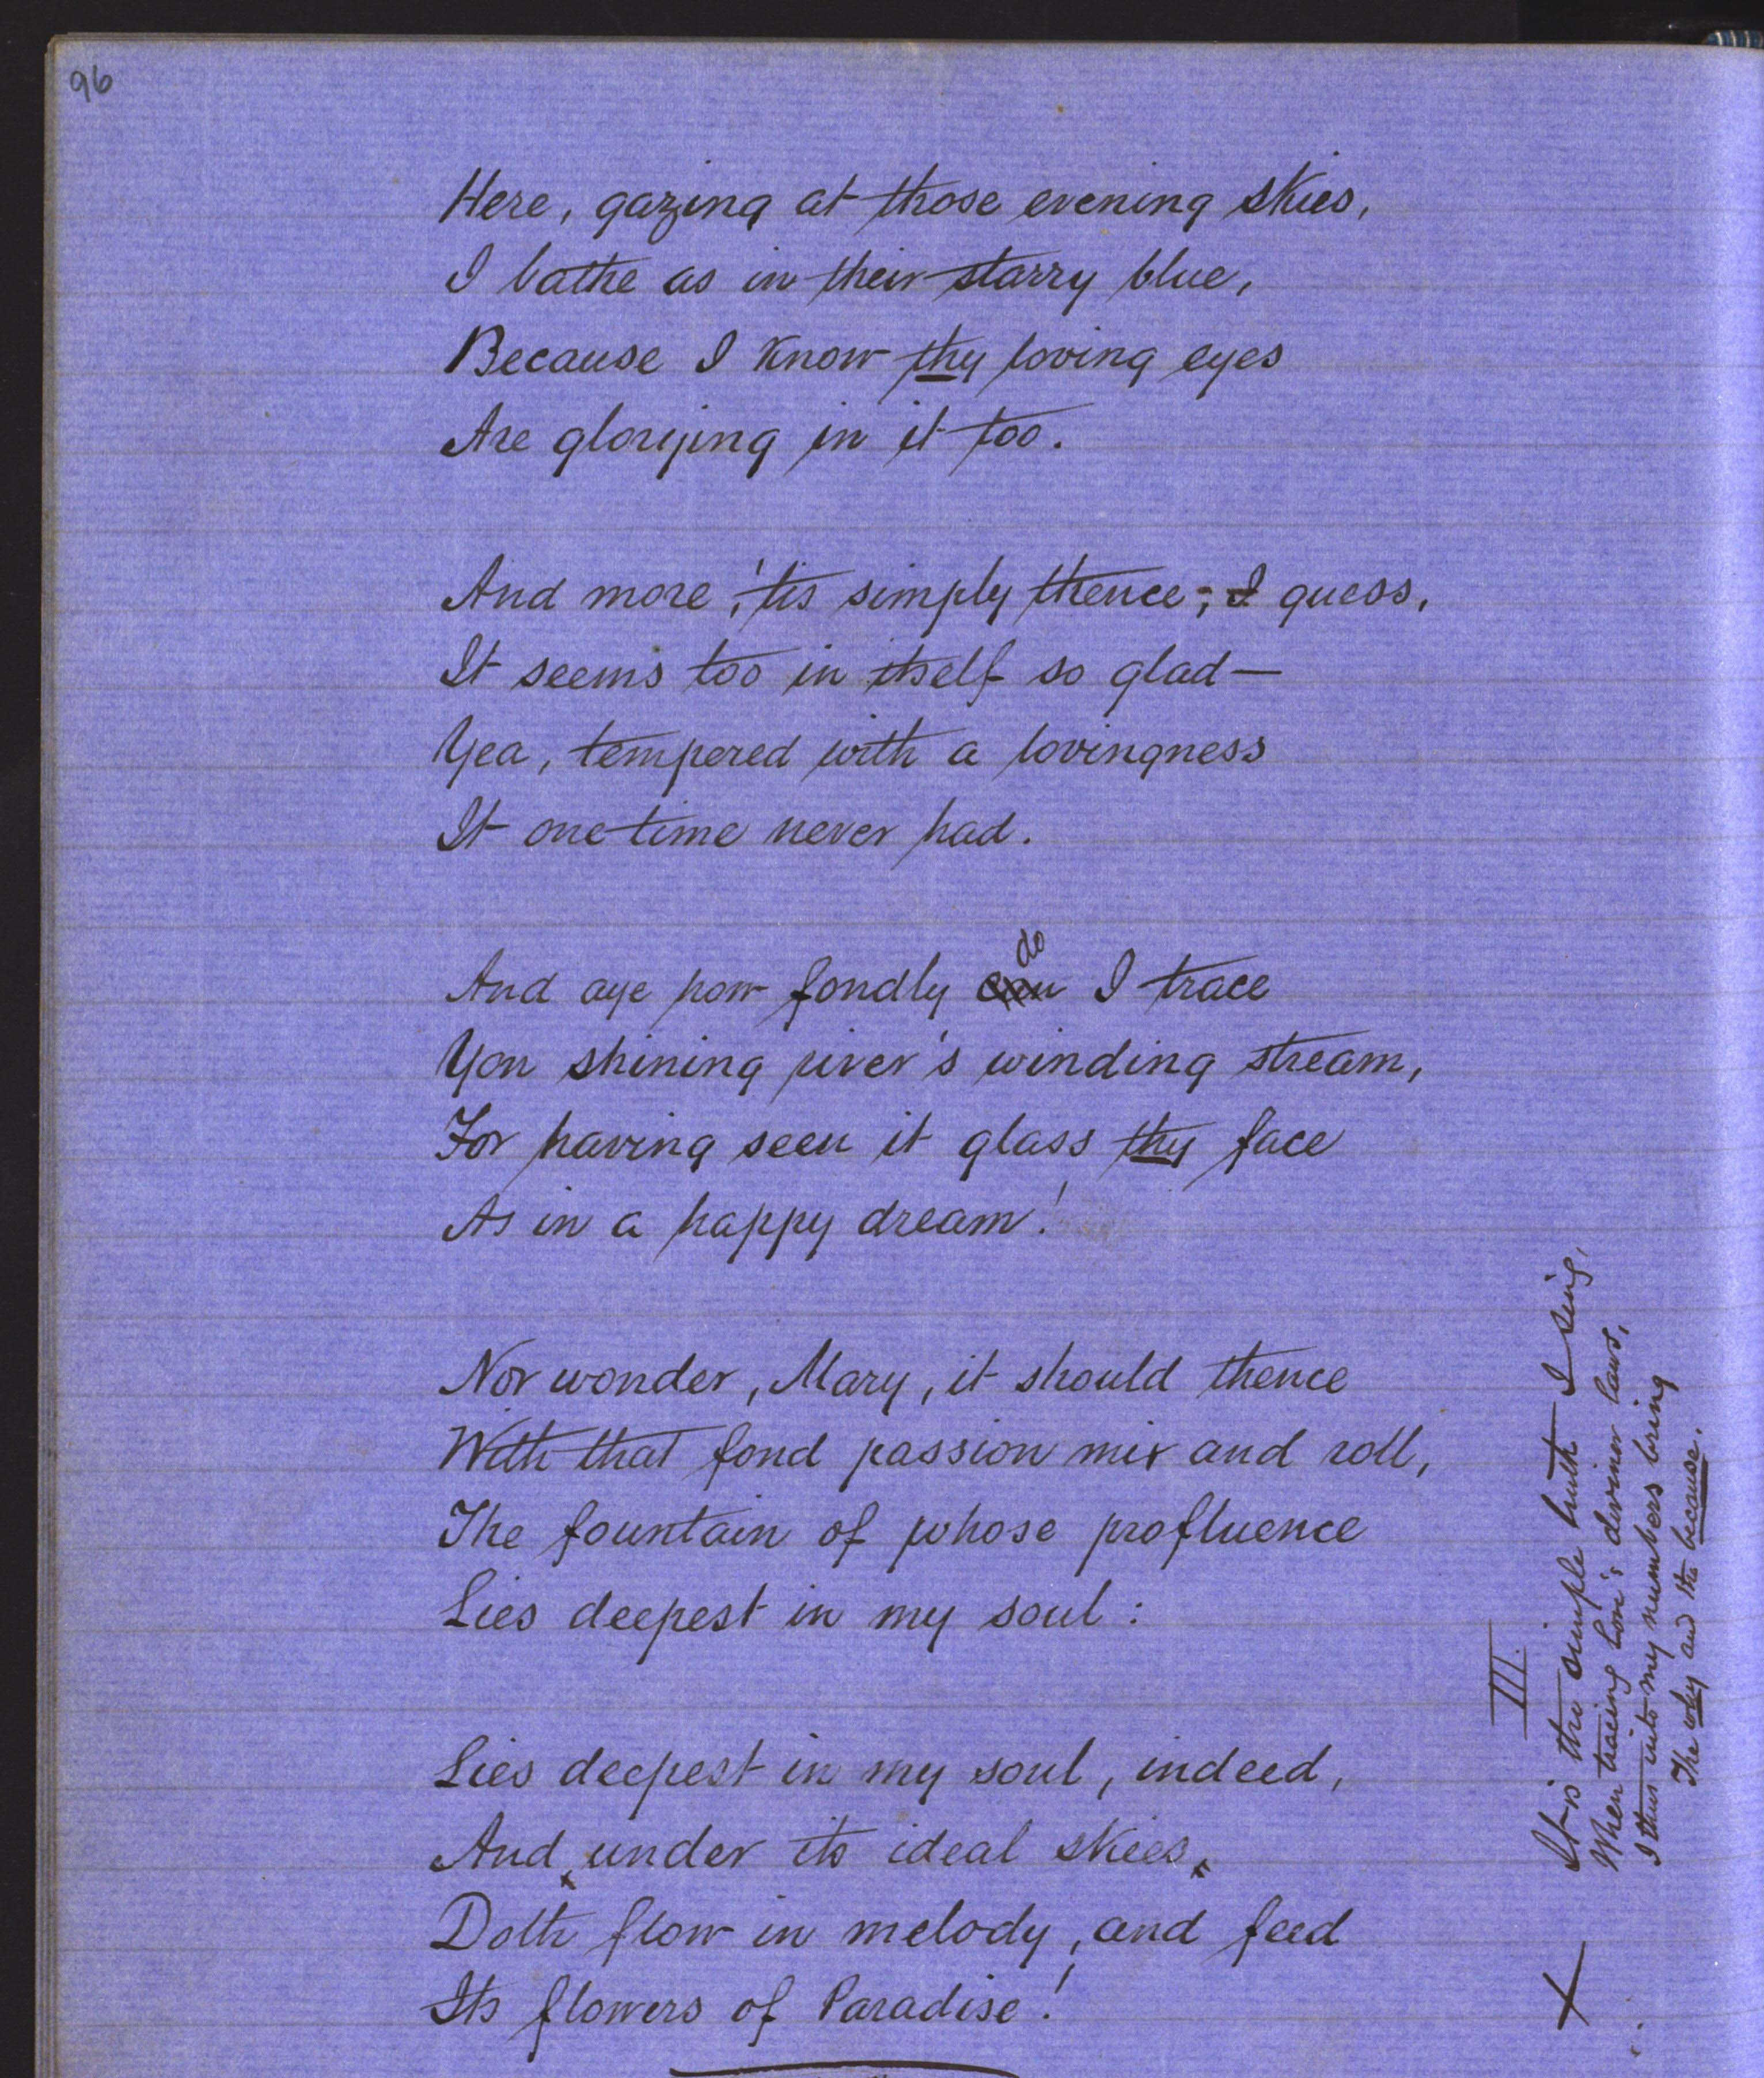 96
Here, gazing at those evening skies,
I bathe as in their starry blue,
Because I know thy loving eyes
Are glorying in it too.
And more, 'tis simply thence, I guess,
It seems too in itself so glad—
Yea, tempered with a lovingness
It one time never had.
And aye how fondly do I trace
Yon shining river's winding stream,
For having seen it glass thy face
As in a happy dream!
Nor wonder, Mary, it should thence
With that fond passion mix and roll,
The fountain of whose profluence
Lies deepest in my soul:
Lies deepest in my soul, indeed,
And, under its ideal skies,
Doth flow in melody, and feed
Its flowers of Paradise!
III.
X It is the simple truth I sing,
When tracing love's diviner laws,
I thus into my numbers bring
The why and the because.